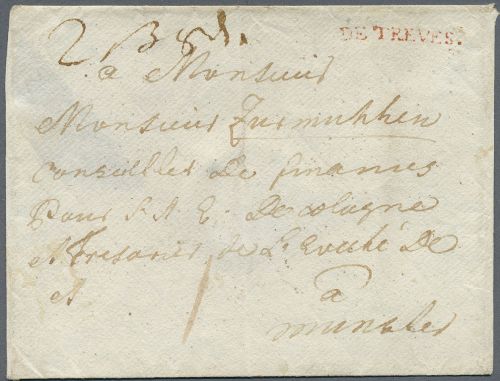 DE TREVES.
a Monsieur
Monsieur Zurmuhlen
Conseiller de finances
Pour S. A. E. De Cologne
et Tresorier de L'Eveché De
a
munster